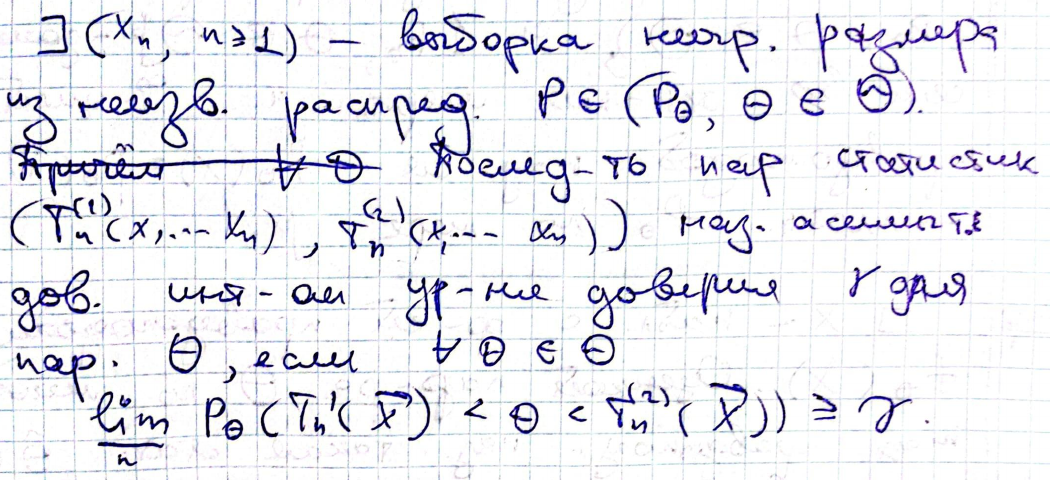 ∃ (Xn, n ≥ 1) – выборка неогр. размера
из неизв. распред. P ∈ (Pθ, θ ∈ Θ).
Причём ∀ θ Послед-ть пар статистик
(Tn⁽¹⁾(x,... Xn), Tn⁽²⁾(x,... xn)) наз. асимпт.
дов. инт-ом ур-ня доверия γ для
пар. θ, если ∀ θ ∈ Θ
lim Pθ (Tn'(X⃗) < θ < Tn⁽²⁾(X⃗)) ≥ γ.
n